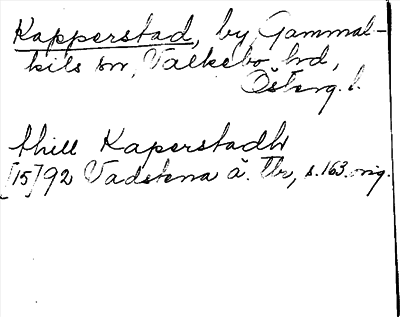 Kapperstad, by, Gammal-
kils sn, Valkebo hd,
Österg. l.
thill Kaperstadh
[15]92 Vadstena ä. Tbr, s.163.orig.